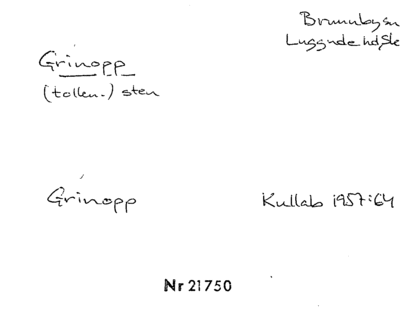 Brunnby sn
Luggude hd Sk
Grinopp
(tollen-) sten
Grinopp
Kullab 1957:64
Nr 21750